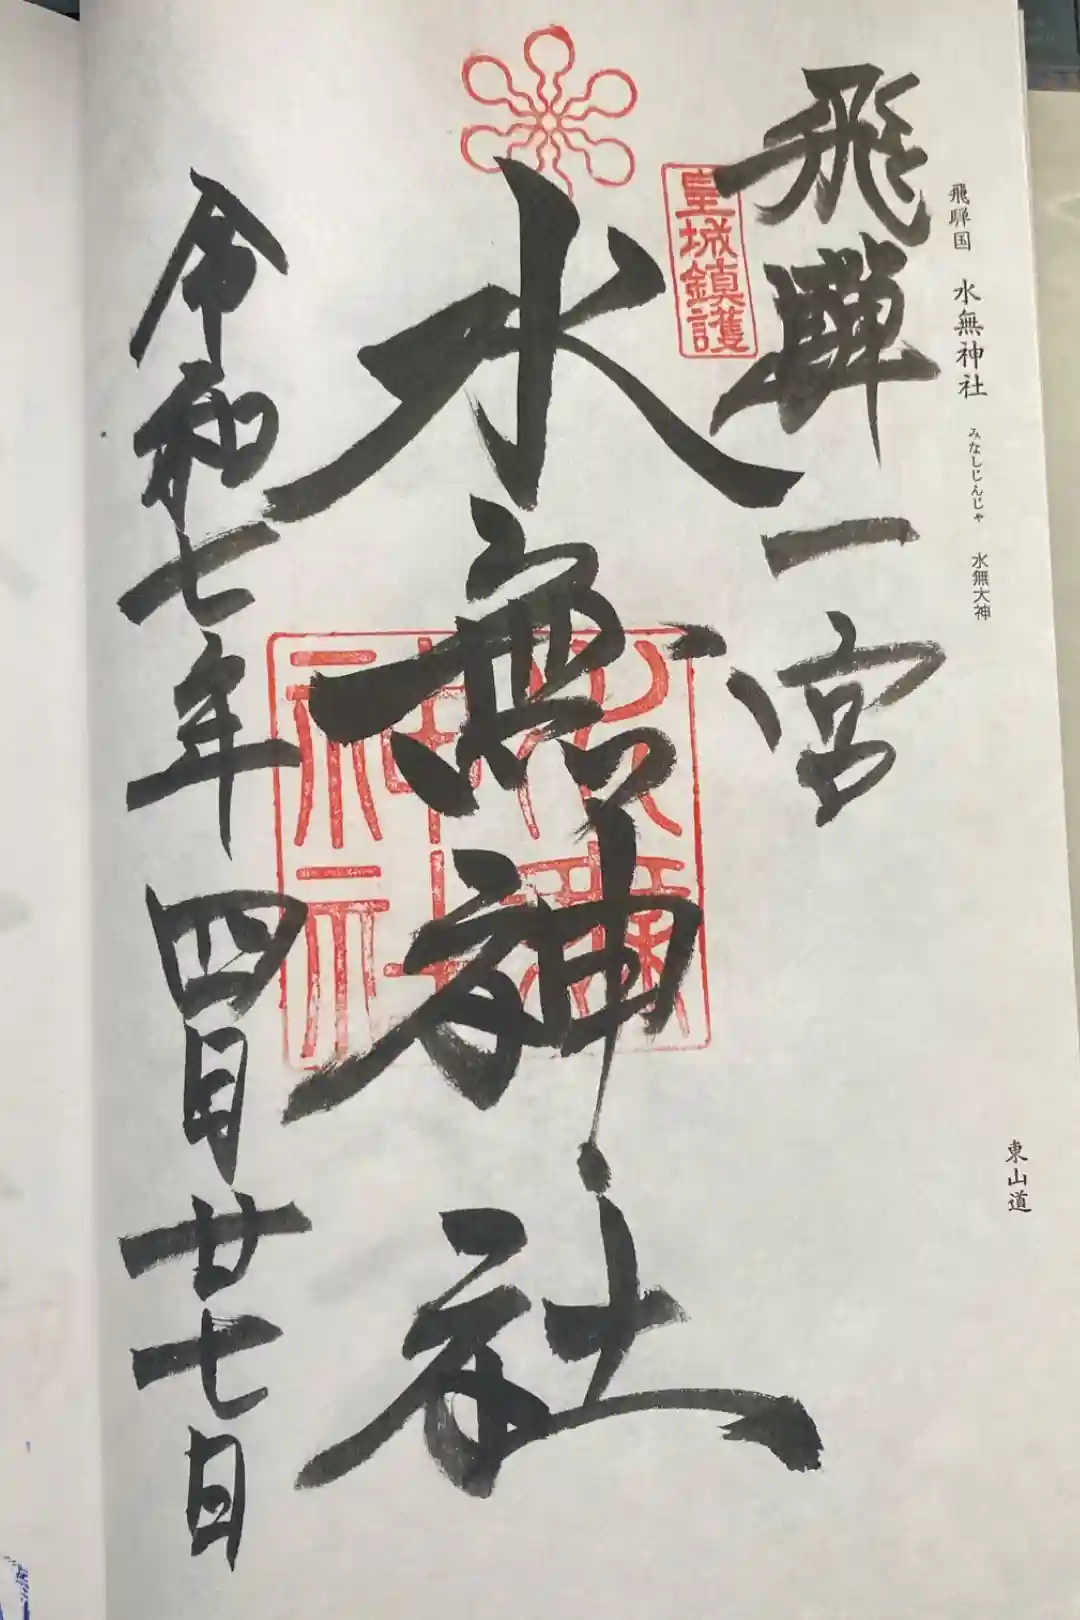 飛騨国 水無神社 みなしじんじゃ 水無大神
東山道
飛驒一宮
皇城鎮護
水無神社
水無神社
令和七年四月廿七日